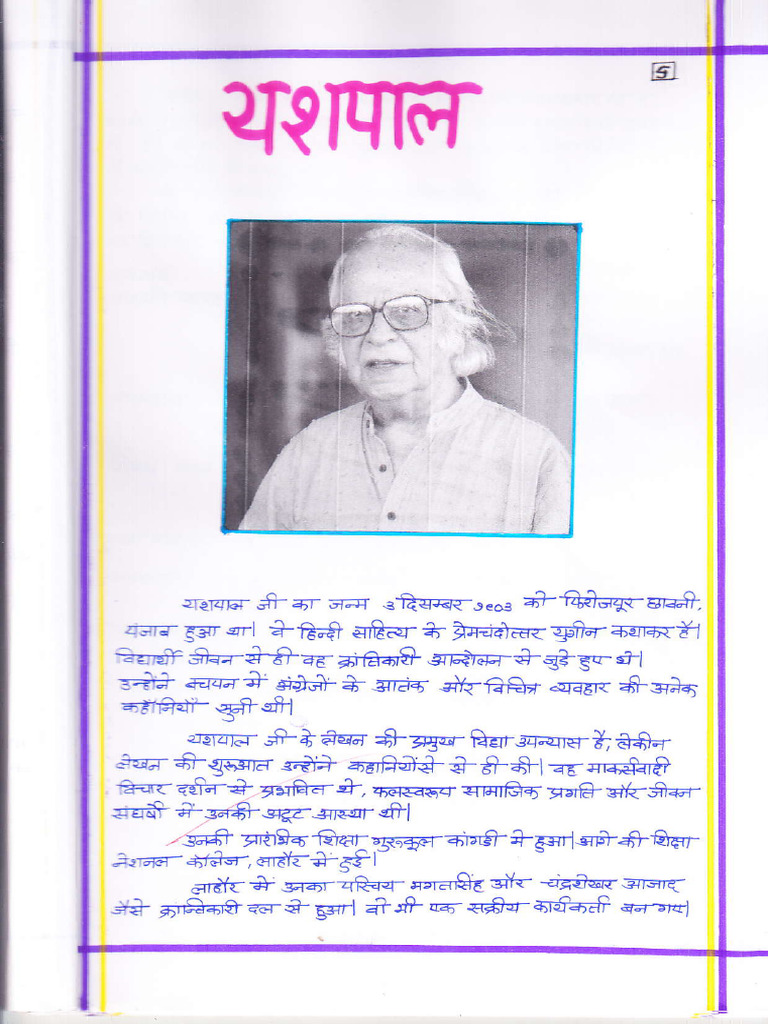 5
यशपाल
यशपाल जी का जन्म ३ दिसम्बर १९०३ को फिरोजपूर छावनी,
पंजाब हुआ था। वे हिन्दी साहित्य के प्रेमचंदोत्तर युगीन कथाकर है।
विद्यार्थी जीवन से ही वह क्रांतिकारी आन्दोलन से जुडे हुए थे।
उन्होंने बचपन में अंग्रेजों के आतंक और विचित्र व्यवहार की अनेक
कहानियाँ सुनी थी।
यशपाल जी के लेखन की प्रमुख विद्या उपन्यास है, लेकीन
लेखन की शुरूआत उन्होंने कहानियोंसे से ही की। वह मार्क्सवादी
विचार दर्शन से प्रभावित थे, फलस्वरूप सामाजिक प्रगति और जीवन
संघर्षो में उनकी अटूट आस्था थी।
उनकी प्रारंभिक शिक्षा गुरुकूल कांगडी मे हुआ। आगे की शिक्षा
नेशनल कॉलेज, लाहौर में हुई।
लाहौर में उनका परिचय भगतासिंह और चंद्रशेखर आजाद
जैसे क्रान्तिकारी दल से हुआ। वो भी एक सक्रीय कार्यकर्ता बन गए।